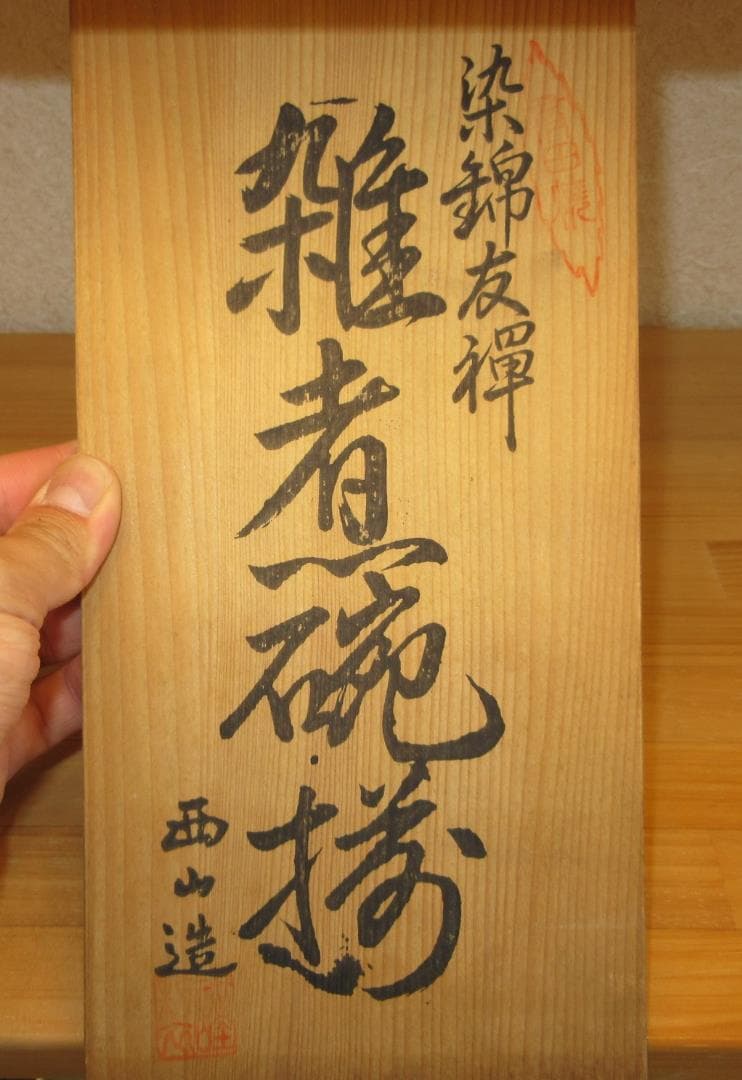 染錦友禪
雑煮碗揃
西山造